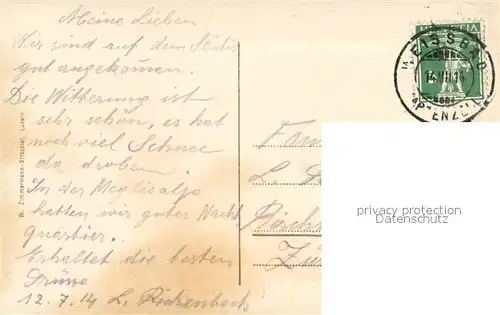 Meine Lieben!
Wir sind auf dem Säntis
gut angekommen.
Die Witterung ist
sehr schön, es hat
noch viel Schnee
da droben.
In der Meglisalp
hatten wir gutes Nacht
quartier.
Erhaltet die besten
Grüsse
12.7.14 L. Rickenbach
W. Zimmermann-Strässler, Luzern
HELVETIA
WEISSBAD
APPENZELL
Fam
L.
Zü
privacy protection
Datenschutz